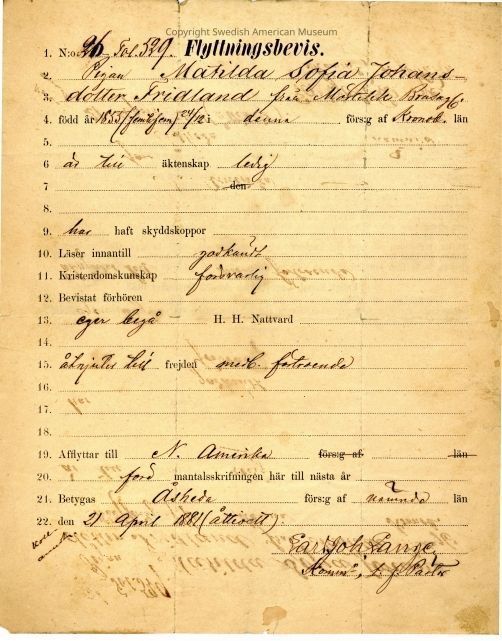 Copyright Swedish American Museum
1. N:o 26 Fol. 529. Flyttningsbevis.
2. Pigan Matilda Sofia Johans-
3. dotter Fridland från
4. född år 1855 (femtifem) 27/12 i denna förs:g af Kronob. län
5.
6. är till äktenskap ledig
7. den
8.
9. har haft skyddskoppor
10. Läser innantill godkändt
11. Kristendomskunskap försvarlig
12. Bevistat förhören
13. eger begå H. H. Nattvard
14.
15. åtnjuter till frejden medb. förtroende
16.
17.
18.
19. Afflyttar till N. Amerika förs:g af län
20. förd mantalsskrifningen här till nästa år
21. Betygas Åsheda förs:g af nämnda län
22. den 21 April 1881 (åttioett).
Carl Joh. Lange.